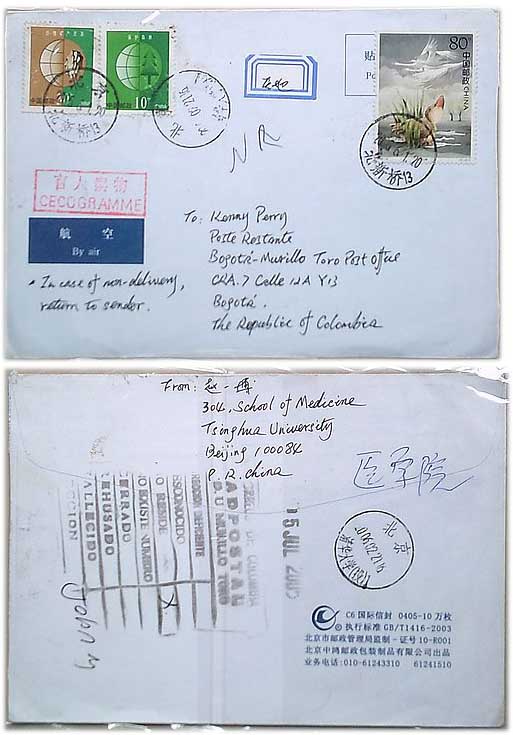 中国邮政
中国邮政
10分
80
中国邮政 CHINA
贴
Po
北新桥13
北新桥13
北
N R
盲人读物
CECOGRAMME
航 空
By air
• In case of non-delivery,
return to sender.
To: Kenny Perry
Poste Restante
Bogotá-Murillo Toro Post Office
CRA. 7 Calle 12A Y13
Bogotá.
The Republic of Colombia
From: 赵一博
304, School of Medicine
Tsinghua University
Beijing 100084
P. R. China
医学院
ADPOSTAL
MURILLO TORO
DIRECCION DEFICIENTE
DESCONOCIDO
NO RESIDE
X
NO EXISTE NUMERO
CERRADO
REHUSADO
FALLECIDO
DIRECCION
5 JUL 200
北京
C6 国际信封 0405-10 万枚
执行标准 GB/T1416-2003
北京市邮政管理局监制 - 证号 10-R001
北京中鸿邮政包装制品有限公司出品
业务电话:010-61243310 61241510